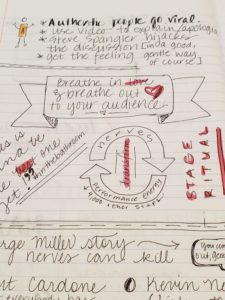 * Authentic people go viral.
* Use video to explain/apologize
* Steve Spangler hijacks
the discussion [inda good,
* get the feeling gentle way
of course]
Breathe in love
& breathe out
to your audience
nerves
transition
performance energy
& other stuff
STAGE
RITUAL
#inthebathroom
rge Miller story
nerves can kill
You come
out, gen
nt Cardone
Kevin Ne